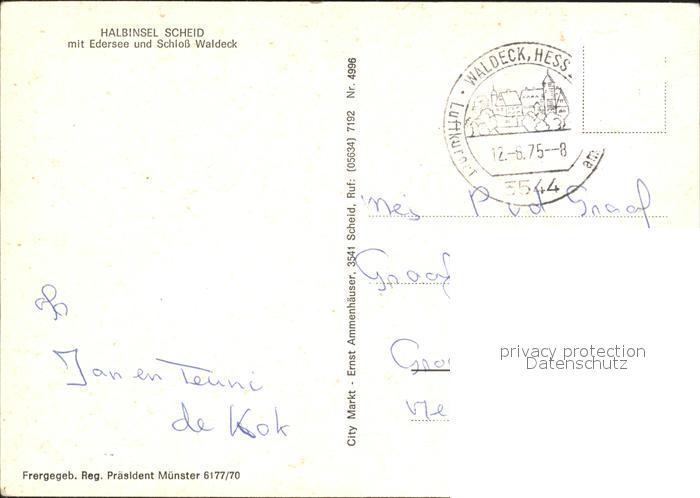 HALBINSEL SCHEID
mit Edersee und Schloß Waldeck
Jan en Teuni
de Kok
Frergegeb. Reg. Präsident Münster 6177/70
City Markt - Ernst Ammenhäuser, 3541 Scheid, Ruf: (05634) 7192 Nr. 4996
WALDECK, HESS
Luftkurort
am
12.-6.75--8
3544
P v d Graaf
Graaf
privacy protection
Datenschutz